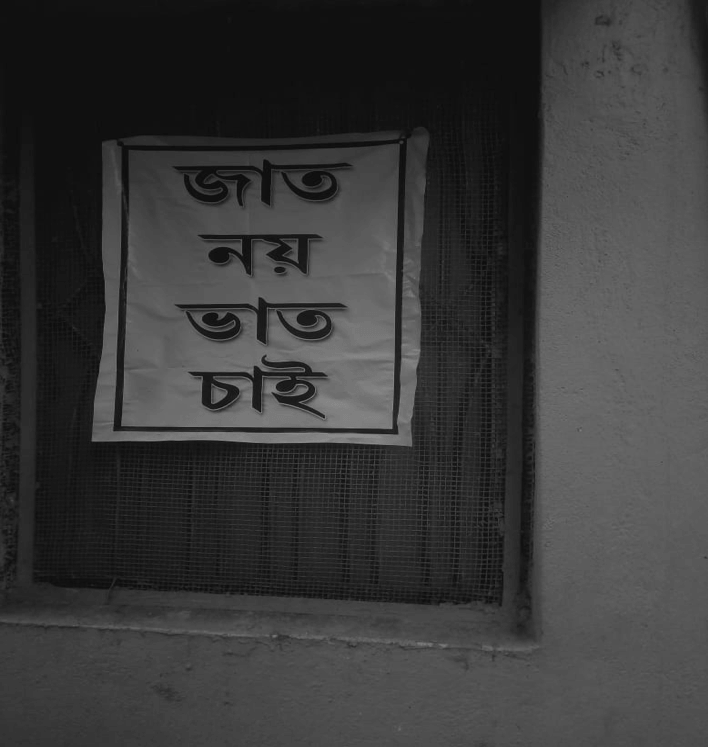 জাত
নয়
ভাত
চাই